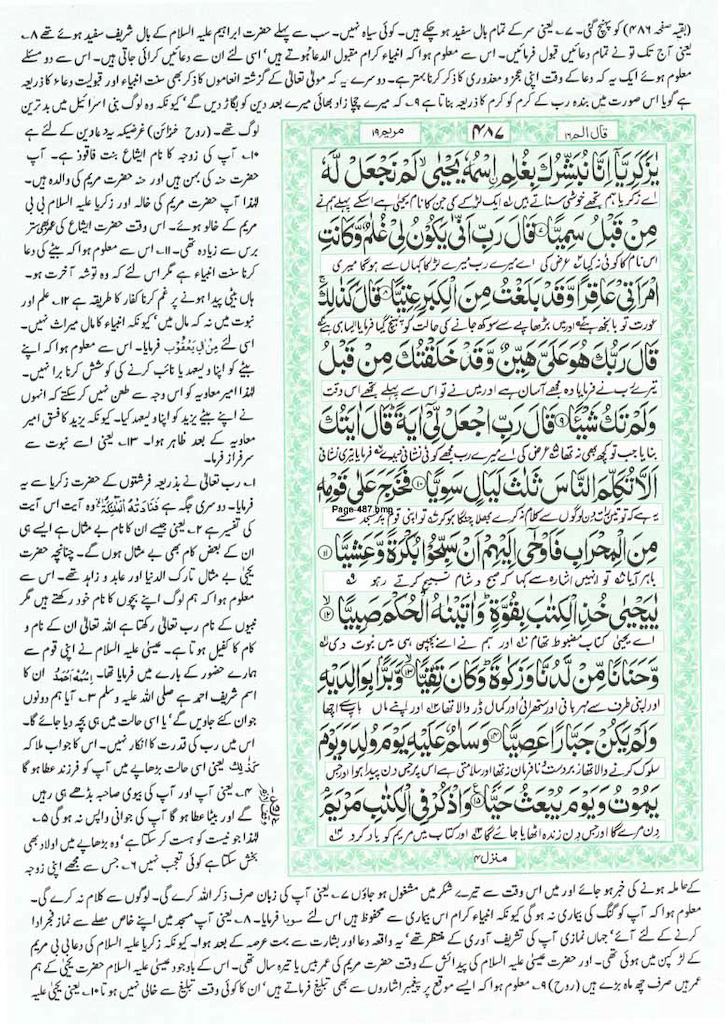 (بقیہ صفحہ ۴۸۶) کو پہنچ گئی۔ ۷۔ یعنی سر کے تمام بال سفید ہو چکے ہیں۔ کوئی سیاہ نہیں۔ سب سے پہلے حضرت ابراہیم علیہ السلام کے بال شریف سفید ہوئے تھے ۸۔
یعنی آج تک تو نے تمام دعائیں قبول فرمائیں۔ اس سے معلوم ہوا کہ انبیاء کرام مقبول الدعا ہوتے ہیں، اسی لئے ان سے دعائیں کرائی جاتی ہیں۔ اس سے دو مسئلے
معلوم ہوئے ایک یہ کہ دعا کے وقت اپنی عجز و معذوری کا ذکر کرنا بہتر ہے۔ دوسرے یہ کہ مولی تعالیٰ کے گزشتہ انعاموں کا ذکر بھی سنت انبیاء اور قبولیت دعاء کا ذریعہ
ہے گویا اس صورت میں بندہ رب کے کرم کو کرم کا ذریعہ بناتا ہے ۹۔ کہ میرے چچا زاد بھائی میرے بعد دین کو بگاڑ دیں گے، کیونکہ وہ لوگ بنی اسرائیل میں بدترین
قال الم ۱۶
۴۸۷
مریم ۱۹
یٰزَكَرِیَّاۤ اِنَّا نُبَشِّرُكَ بِغُلٰمِ اِسْمُهٗ یَحْیٰىۙ لَمْ نَجْعَلْ لَّهٗ
اے زکریا ہم تجھے خوشی سناتے ہیں ایک لڑکے کی جن کا نام یحیٰی ہے اسکے پہلے ہم نے
مِنْ قَبْلُ سَمِیًّا ۷ قَالَ رَبِّ اَنّٰى یَكُوْنُ لِیْ غُلٰمٌ وَّ كَانَتِ
اس نام کا کوئی نہ کیا عرض کی اے میرے رب میرے لڑکا کہاں سے ہوگا میری
امْرَاَتِیْ عَاقِرًا وَّ قَدْ بَلَغْتُ مِنَ الْكِبَرِ عِتِیًّا ۸ قَالَ كَذٰلِكَۚ
عورت تو بانجھ ہے اور میں بڑھاپے سے سوکھ جانے کی حالت کو پہنچ گیا فرمایا ایسا ہی ہے
قَالَ رَبُّكَ هُوَ عَلَیَّ هَیِّنٌ وَّ قَدْ خَلَقْتُكَ مِنْ قَبْلُ
تیرے رب نے فرمایا وہ مجھے آسان ہے اور میں نے تو اس سے پہلے تجھے اس وقت
وَ لَمْ تَكُ شَیْـٴًـا ۹ قَالَ رَبِّ اجْعَلْ لِّیْۤ اٰیَةًؕ قَالَ اٰیَتُكَ
بنایا جب تو کچھ بھی نہ تھا عرض کی اے میرے رب مجھے کوئی نشانی دیدے فرمایا تیری نشانی
اَلَّا تُكَلِّمَ النَّاسَ ثَلٰثَ لَیَالٍ سَوِیًّا ۱۰ فَخَرَجَ عَلٰى قَوْمِهٖ
یہ ہے کہ تو تین رات دن لوگوں سے کلام نہ کرے بھلا چنگا ہو کر تو اپنی قوم پر مسجد سے
Page-487.bmp
مِنَ الْمِحْرَابِ فَاَوْحٰۤى اِلَیْهِمْ اَنْ سَبِّحُوْا بُكْرَةً وَّ عَشِیًّا ۱۱
باہر آیا تو انہیں اشارہ سے کہا کہ صبح و شام تسبیح کرتے رہو
یٰیَحْیٰى خُذِ الْكِتٰبَ بِقُوَّةٍؕ وَ اٰتَیْنٰهُ الْحُكْمَ صَبِیًّا ۱۲
اے یحیٰی کتاب مضبوط تھام اور ہم نے اسے بچپن ہی میں نبوت دی
وَّ حَنَانًا مِّنْ لَّدُنَّا وَ زَكٰوةًؕ وَ كَانَ تَقِیًّا ۱۳ وَّ بَرًّۢا بِوَالِدَیْهِ
اور اپنی طرف سے مہربانی اور ستھرائی اور کمال ڈر والا تھا اور اپنے ماں باپ سے اچھا
وَ لَمْ یَكُنْ جَبَّارًا عَصِیًّا ۱۴ وَ سَلٰمٌ عَلَیْهِ یَوْمَ وُلِدَ وَ یَوْمَ
سلوک کرنے والا تھا زبردست نافرمان نہ تھا اور سلامتی ہے اس پر جس دن پیدا ہوا اور جس
یَمُوْتُ وَ یَوْمَ یُبْعَثُ حَیًّا ۱۵ وَ اذْكُرْ فِی الْكِتٰبِ مَرْیَمَۘ
دن مرے گا اور جس دن زندہ اٹھایا جائے گا اور کتاب میں مریم کو یاد کرو
منزل ۴
لوگ تھے۔ (روح خزائن) غرضیکہ سید عابدین کے لئے ہے
۱۰۔ آپ کی زوجہ کا نام ایشاع بنت فاقوذ ہے۔ آپ
حضرت حنہ کی بہن ہیں اور حنہ حضرت مریم کی والدہ ہیں۔
لہٰذا آپ حضرت مریم کی خالہ اور زکریا علیہ السلام بی بی
مریم کے خالو ہوئے۔ اس وقت حضرت ایشاع کی عمر بھی ستر
برس سے زیادہ تھی۔ ۱۱۔ اس سے معلوم ہوا کہ بیٹے کی دعا
کرنا سنت انبیاء ہے مگر اس لئے کہ وہ توشہ آخرت ہو۔
ہاں بیٹی پیدا ہونے پر غم کرنا کفار کا طریقہ ہے ۱۲۔ علم اور
نبوت میں نہ کہ مال میں، کیونکہ انبیاء کا مال میراث نہیں۔
اسی لئے مِنْ اٰلِ یَعْقُوْبَ فرمایا۔ اس سے معلوم ہوا کہ اپنے
بیٹے کو اپنا ولیعہد یا نائب کرنے کی کوشش کرنا برا نہیں۔
لہٰذا امیر معاویہ کو اس وجہ سے طعن نہیں کر سکتے کہ انہوں
نے اپنے بیٹے یزید کو اپنا ولیعہد کیا۔ کیونکہ یزید کا فسق امیر
معاویہ کے بعد ظاہر ہوا۔ ۱۳۔ یعنی اسے نبوت سے
سرفراز فرما۔
۱۔ رب تعالیٰ نے بذریعہ فرشتوں کے حضرت زکریا سے یہ
فرمایا۔ دوسری جگہ ہے فَنَادَتْهُ الْمَلٰٓئِكَةُ وہ آیت اس آیت
کی تفسیر ہے ۲۔ یعنی جیسے ان کا نام بے مثال ہے ایسے ہی
ان کے بعض کام بھی بے مثال ہوں گے۔ چنانچہ حضرت
یحیٰی بے مثال تارک الدنیا اور عابد و زاہد تھے۔ اس سے
معلوم ہوا کہ ہم لوگ اپنے بچوں کا نام خود رکھتے ہیں مگر
نبیوں کے نام رب تعالیٰ رکھتا ہے اللہ تعالیٰ ان کے نام و
کام کا کفیل ہوتا ہے۔ عیسیٰ علیہ السلام نے اپنی قوم سے
ہمارے حضور کے بارے میں فرمایا تھا۔ اِسْمُهٗۤ اَحْمَدُ ان کا
اسم شریف احمد ہے صلی اللہ علیہ وسلم ۳۔ آیا ہم دونوں
جوان کئے جاویں گے، یا اسی حالت میں ہی بچہ دیا جائے گا۔
اس میں رب کی قدرت کا انکار نہیں۔ اس کا جواب ملا کہ
كَذٰلِكَ یعنی اسی حالت بڑھاپے میں آپ کو فرزند عطا ہو گا
۴۔ یعنی آپ اور آپ کی بیوی صاحبہ بڈھے ہی رہیں
گے اور بیٹا عطا ہو گا آپ کی جوانی واپس نہ ہو گی ۵۔
لہٰذا جو نیست کو ہست کر سکتا ہے، وہ بڑھاپے میں اولاد بھی
بخش سکتا ہے کوئی تعجب نہیں ۶۔ جس سے مجھے اپنی زوجہ
کے حاملہ ہونے کی خبر ہو جائے اور میں اس وقت سے تیرے شکر میں مشغول ہو جاؤں ۷۔ یعنی آپ کی زبان صرف ذکر اللہ کرے گی۔ لوگوں سے کلام نہ کرے گی۔
معلوم ہوا کہ آپ کو گنگ کی بیماری نہ ہو گی کیونکہ انبیاء کرام اس بیماری سے محفوظ ہیں اس لئے سویا فرمایا۔ ۸۔ یعنی آپ مسجد میں اپنے خاص مصلے سے نماز فجر ادا
کرنے کے لئے آئے، جہاں نمازی آپ کی تشریف آوری کے منتظر تھے، یہ واقعہ دعا اور بشارت سے بہت عرصہ کے بعد ہوا۔ کیونکہ زکریا علیہ السلام کی دعا بی بی مریم
کے لڑکپن میں ہوئی تھی۔ اور حضرت عیسیٰ علیہ السلام کی پیدائش کے وقت حضرت مریم کی عمر بیس یا تیرہ سال تھی۔ اس کے باوجود عیسیٰ علیہ السلام حضرت یحیٰی کے ہم
عمر ہیں صرف چھ ماہ بڑے ہیں (روح) ۹۔ معلوم ہوا کہ ایسے موقع پر پیغمبر اشاروں سے بھی تبلیغ فرماتے ہیں، ان کا کوئی وقت تبلیغ سے خالی نہیں ہوتا ۱۰۔ یعنی یحیٰی علیہ